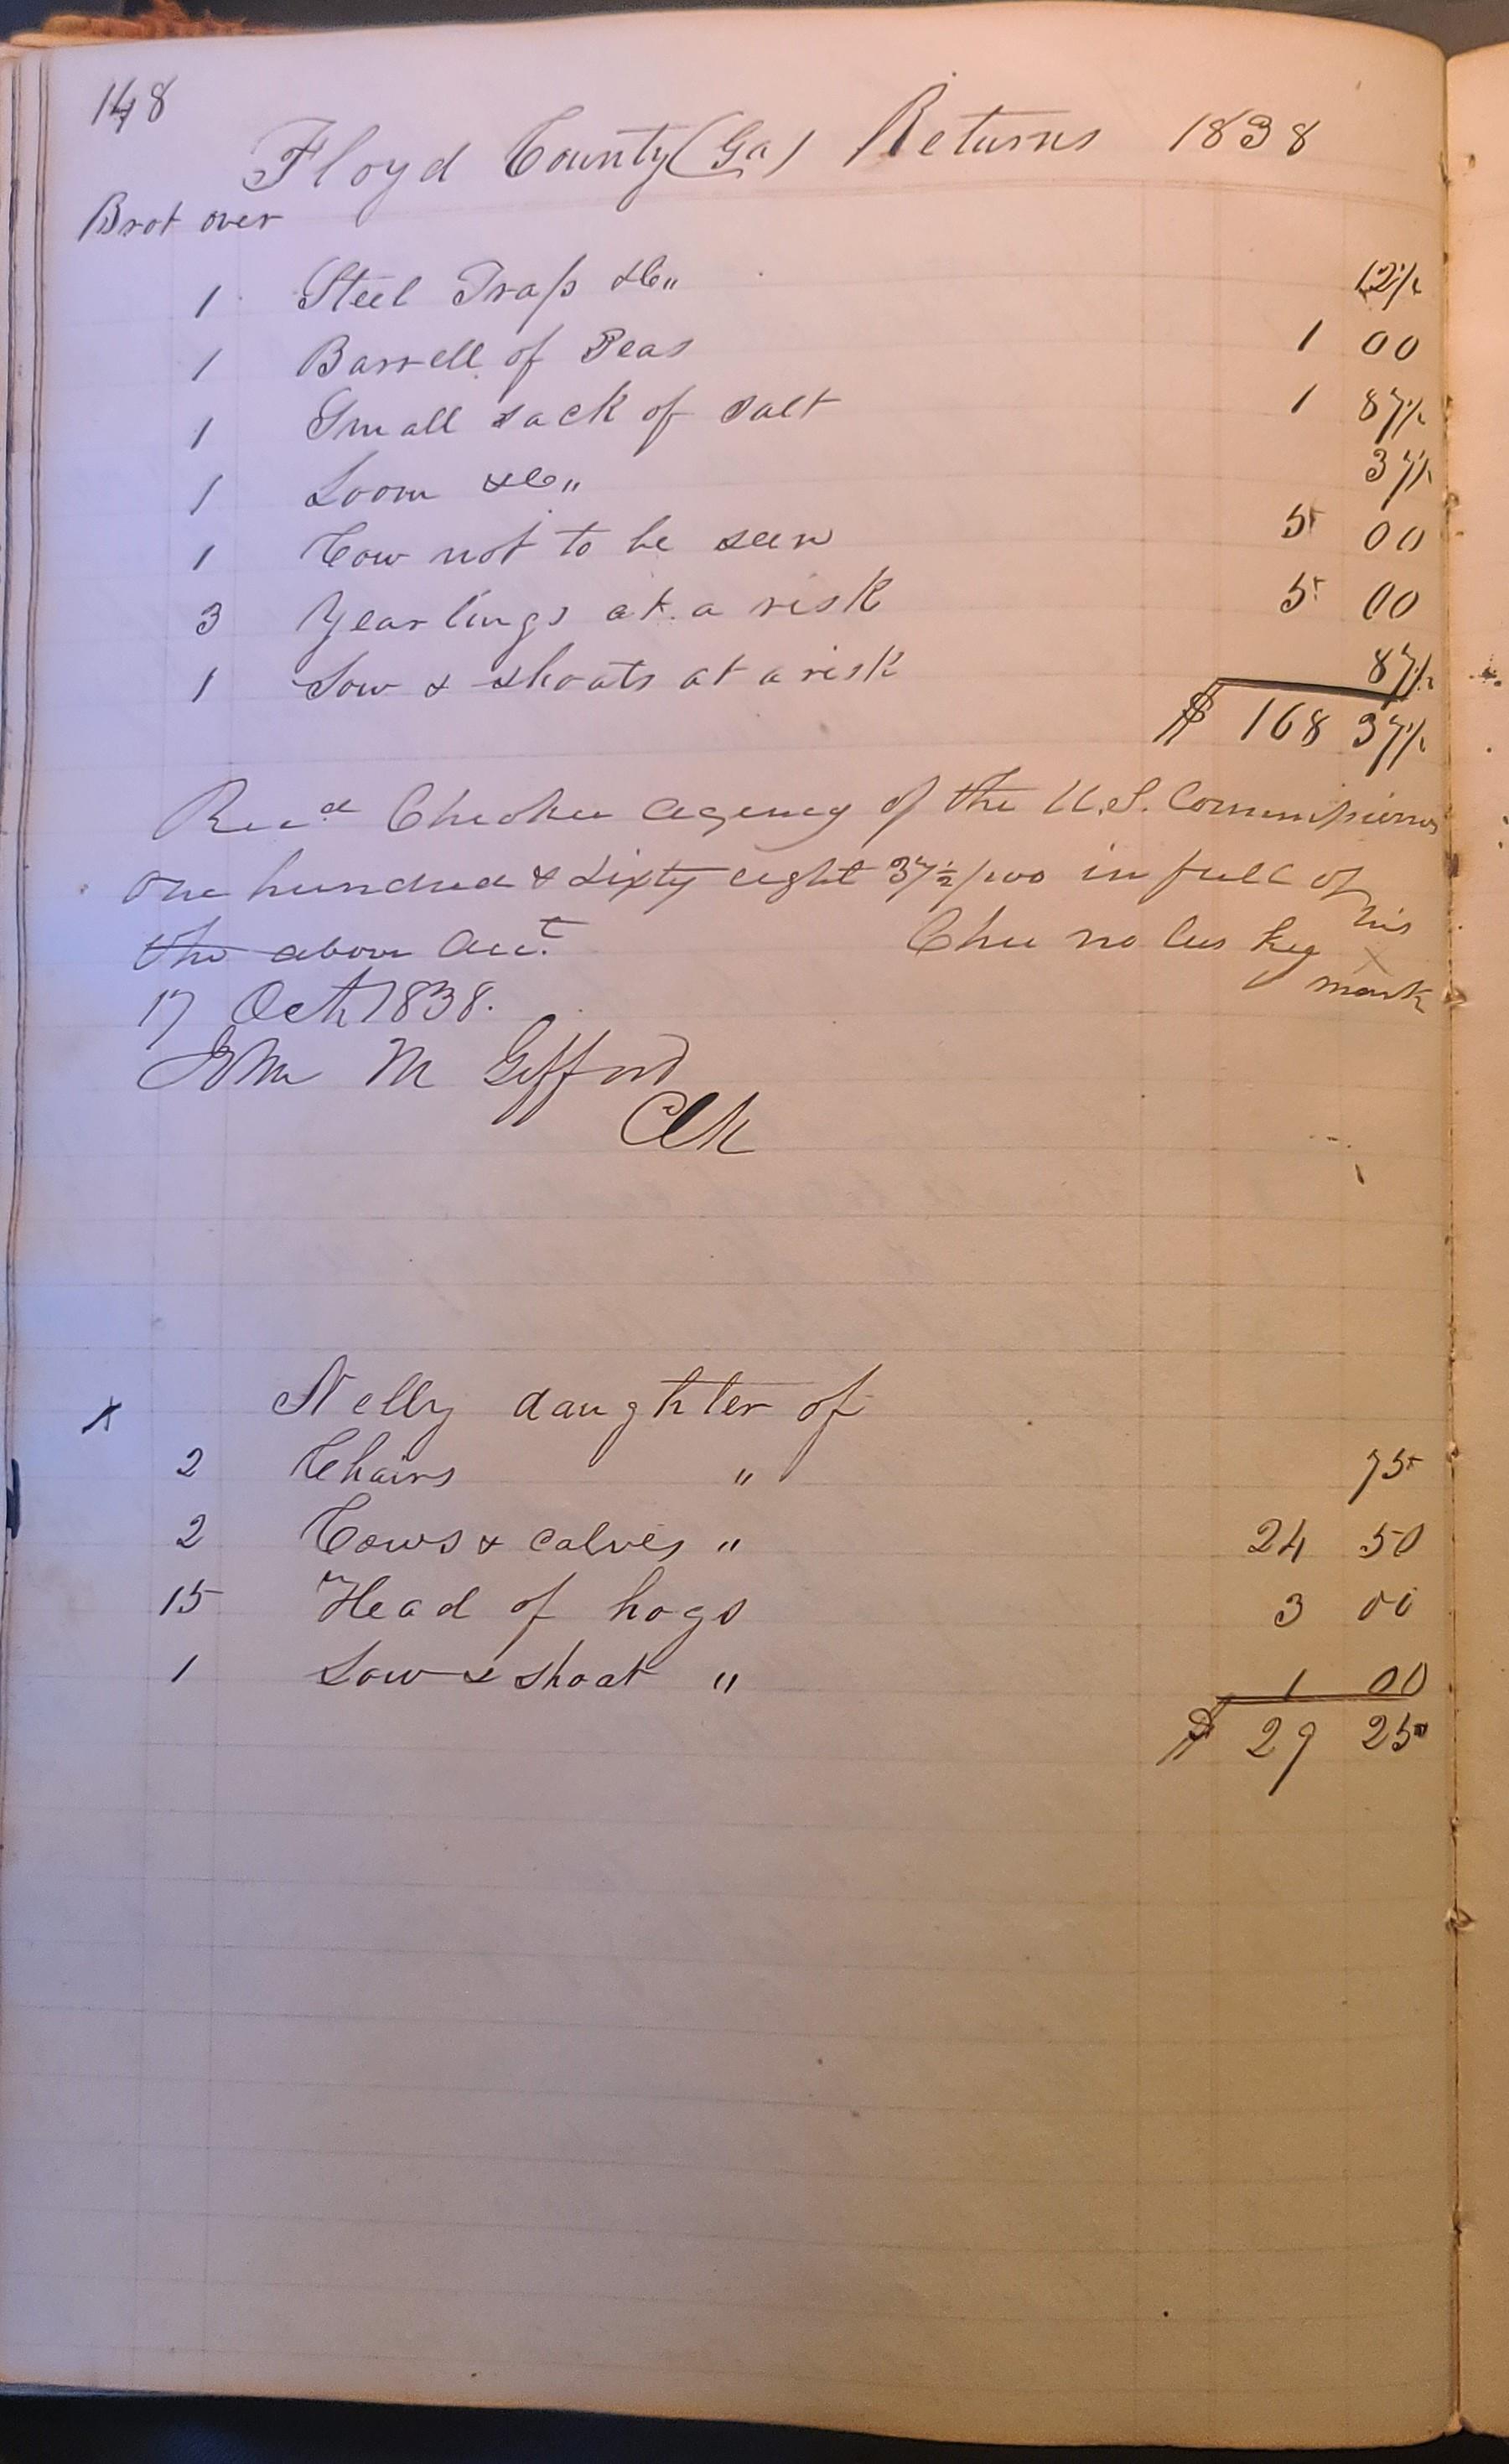 148
Floyd County (Ga) Returns 1838
Brot over
1 Steel Trap &c " 12½
1 Barrell of Peas 1 00
1 Small sack of salt 1 87½
1 Loom &c " 37½
1 Cow not to be seen 5 00
3 Yearlings at a risk 5 00
1 Sow & shoats at a risk 87½
$ 168 37½
Recd Cherokee Agency of the U.S. Commissioners
One hundred & sixty eight 37½/100 in full of
the above Acct. Chu no lus key his x mark
17 Oct 1838.
John M Gifford
Clk
x Nelly daughter of
2 Chairs " 75
2 Cows & calves " 24 50
15 Head of hogs 3 00
1 Sow & shoat " 1 00
$ 29 25